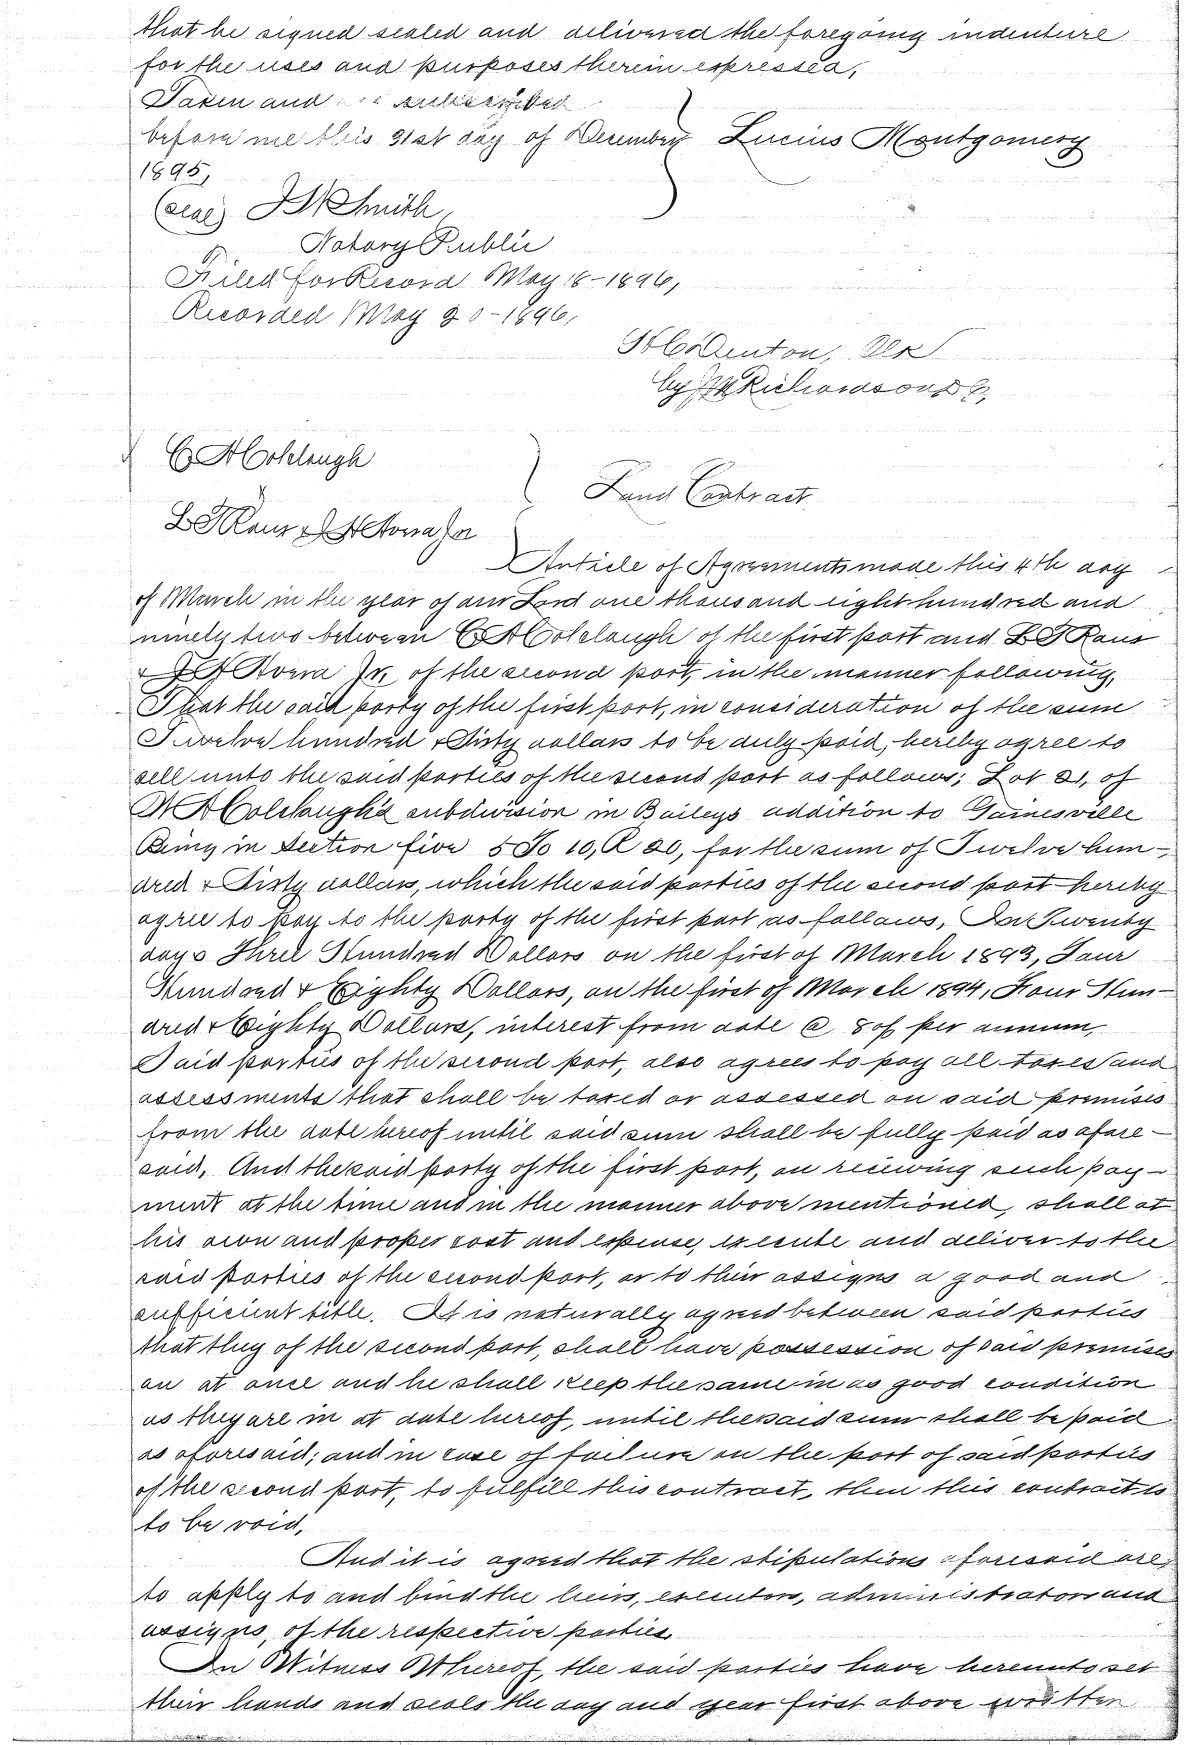 that he signed sealed and delivered the foregoing indenture
for the uses and purposes therein expressed,
Taken and subscribed
before me this 31st day of December Lucius Montgomery
1895,
(seal) Smith
Notary Public
Filed for Record May 18-1896,
Recorded May 20-1896,
Denton, Clk
by Richardson D C,
Colclough
Land Contract
L T Roux &
Article of Agreements made this 4th day
of March in the year of our Lord one thousand eight hundred and
ninety two between Colclough of the first part and L T Roux
& Jr, of the second part, in the manner following,
That the said party of the first part, in consideration of the sum
Twelve hundred & Sixty dollars to be duly paid, hereby agree to
sell unto the said parties of the second part as follows; Lot 21, of
Colclough's subdivision in Baileys addition to Gainesville
Being in Section five 5 To 10, R 20, for the sum of Twelve hun-
dred & Sixty dollars, which the said parties of the second part hereby
agree to pay to the party of the first part as follows, In Twenty
days Three Hundred Dollars on the first of March 1893, Four
Hundred & Eighty Dollars, on the first of March 1894, Four Hun-
dred & Eighty Dollars, interest from date @ 8% per annum,
Said parties of the second part, also agrees to pay all taxes and
assessments that shall be taxed or assessed on said premises
from the date hereof until said sum shall be fully paid as afore-
said. And the said party of the first part, on reciewing such pay-
ment at the time and in the manner above mentioned, shall at
his own and proper cost and expense, execute and deliver to the
said parties of the second part, or to their assigns a good and
sufficient title. It is naturally agreed between said parties
that they of the second part, shall have possession of said premises
on at once and he shall keep the same in as good condition
as they are in at date hereof, until the said sum shall be paid
as aforesaid; and in case of failure on the part of said parties
of the second part, to fulfill this contract, then this contract is
to be void,
And it is agreed that the stipulations aforesaid are,
to apply to and bind the heirs, executors, administrators and
assigns, of the respective parties.
In Witness Whereof, the said parties have hereunto set
their hands and seals the day and year first above written